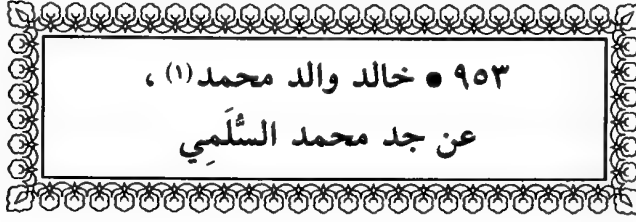 ٩٥٣ • خالد والد محمد(١) ،
عن جد محمد السُّلَمِي